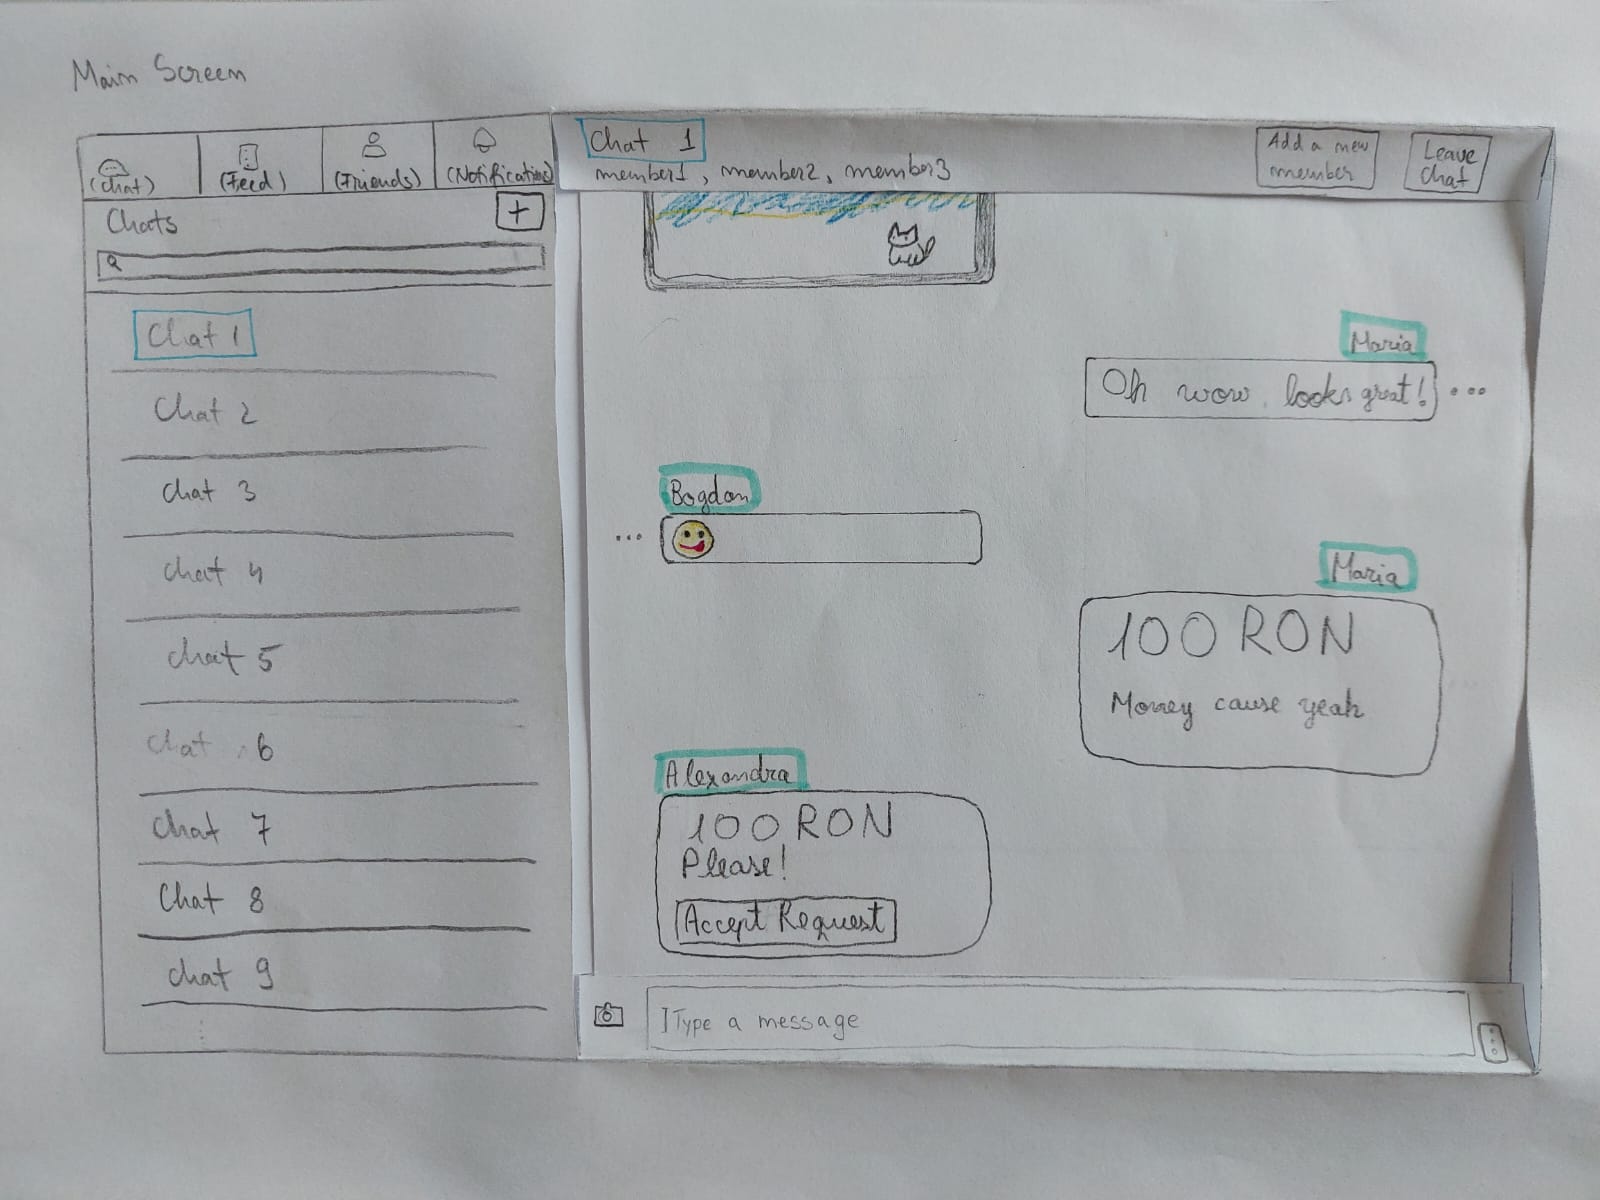 Main Screen
(Chat) (Feed) (Friends) (Notifications)
Chats +
Chat 1
Chat 2
Chat 3
Chat 4
Chat 5
Chat 6
Chat 7
Chat 8
Chat 9
Chat 1
member1, member2, member3
Add a new
member
Leave
chat
Maria
Oh wow, looks great! ...
Bogdan
...
Maria
100 RON
Money cause yeah
Alexandra
100 RON
Please!
Accept Request
Type a message